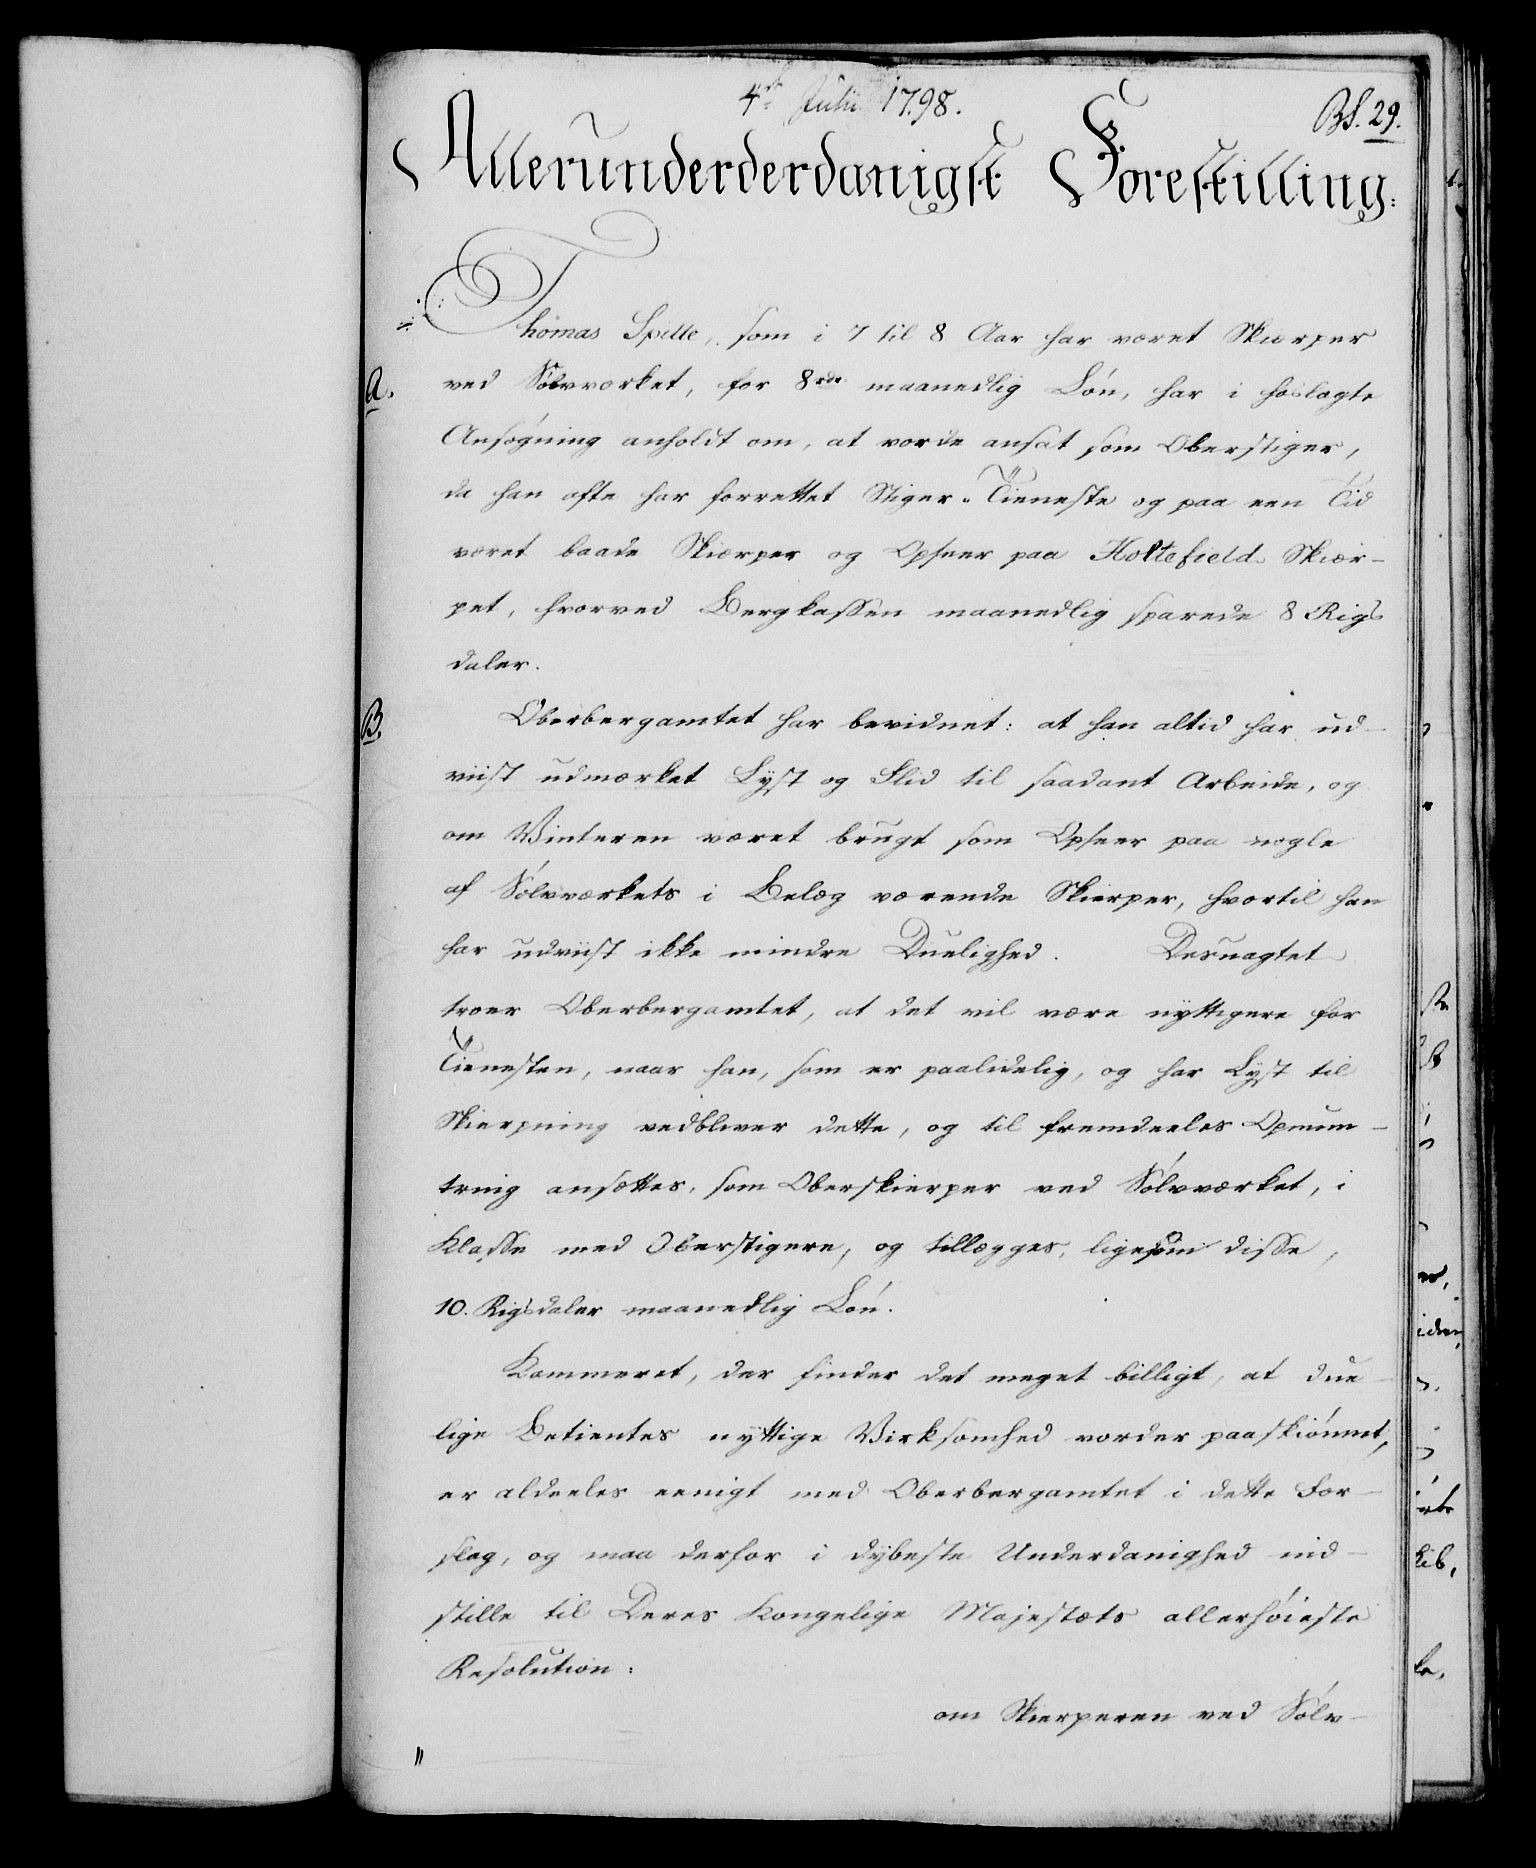 4de Julii 1798.
BS. 29.
Allerunderderdanigst Forestilling:
Thomas Spelle, som i 7 til 8 Aar har været Skiærper
A.
ved Sølvværket, for 8 rdr maanedlig Løn, har i hoslagte
Ansøgning anholdt om, at vorde ansat som Oberstiger,
da han ofte har forrettet Stiger-Tieneste og paa een Tid
været baade Skiærper og Opseer paa Holtefield Skiær-
pet, hvorved Bergkassen maanedlig sparede 8 Rigs
daler.
B.
Oberbergamtet har bevidnet: at han altid har ud-
viist udmærket Lyst og Flid til saadant Arbeide, og
om Vinteren været brugt som Opseer paa nogle
af Sølvværkets i Belæg værende Skierper, hvortil han
har udviist ikke mindre Duelighed. Desuagtet
troer Oberbergamtet, at det vil være nyttigere for
Tienesten, naar han, som er paalidelig, og har Lyst til
Skierpning vedbliver dette, og til fremdeeles Opmun-
tring ansættes, som Oberskierper ved Sølvværket, i
Klasse med Oberstigere, og tillægges, ligesom disse,
10. Rigsdaler maanedlig Løn.
Kammeret, der finder det meget billigt, at due-
lige Betientes nyttige Virksomhed vorder paaskiønnet,
er aldeeles eenigt med Oberbergamtet i dette For-
slag, og maa derfor i dybeste Underdanighed ind-
stille til Deres Kongelige Majestæts allerhøieste
Resolution:
om Skierperen ved Sølv-